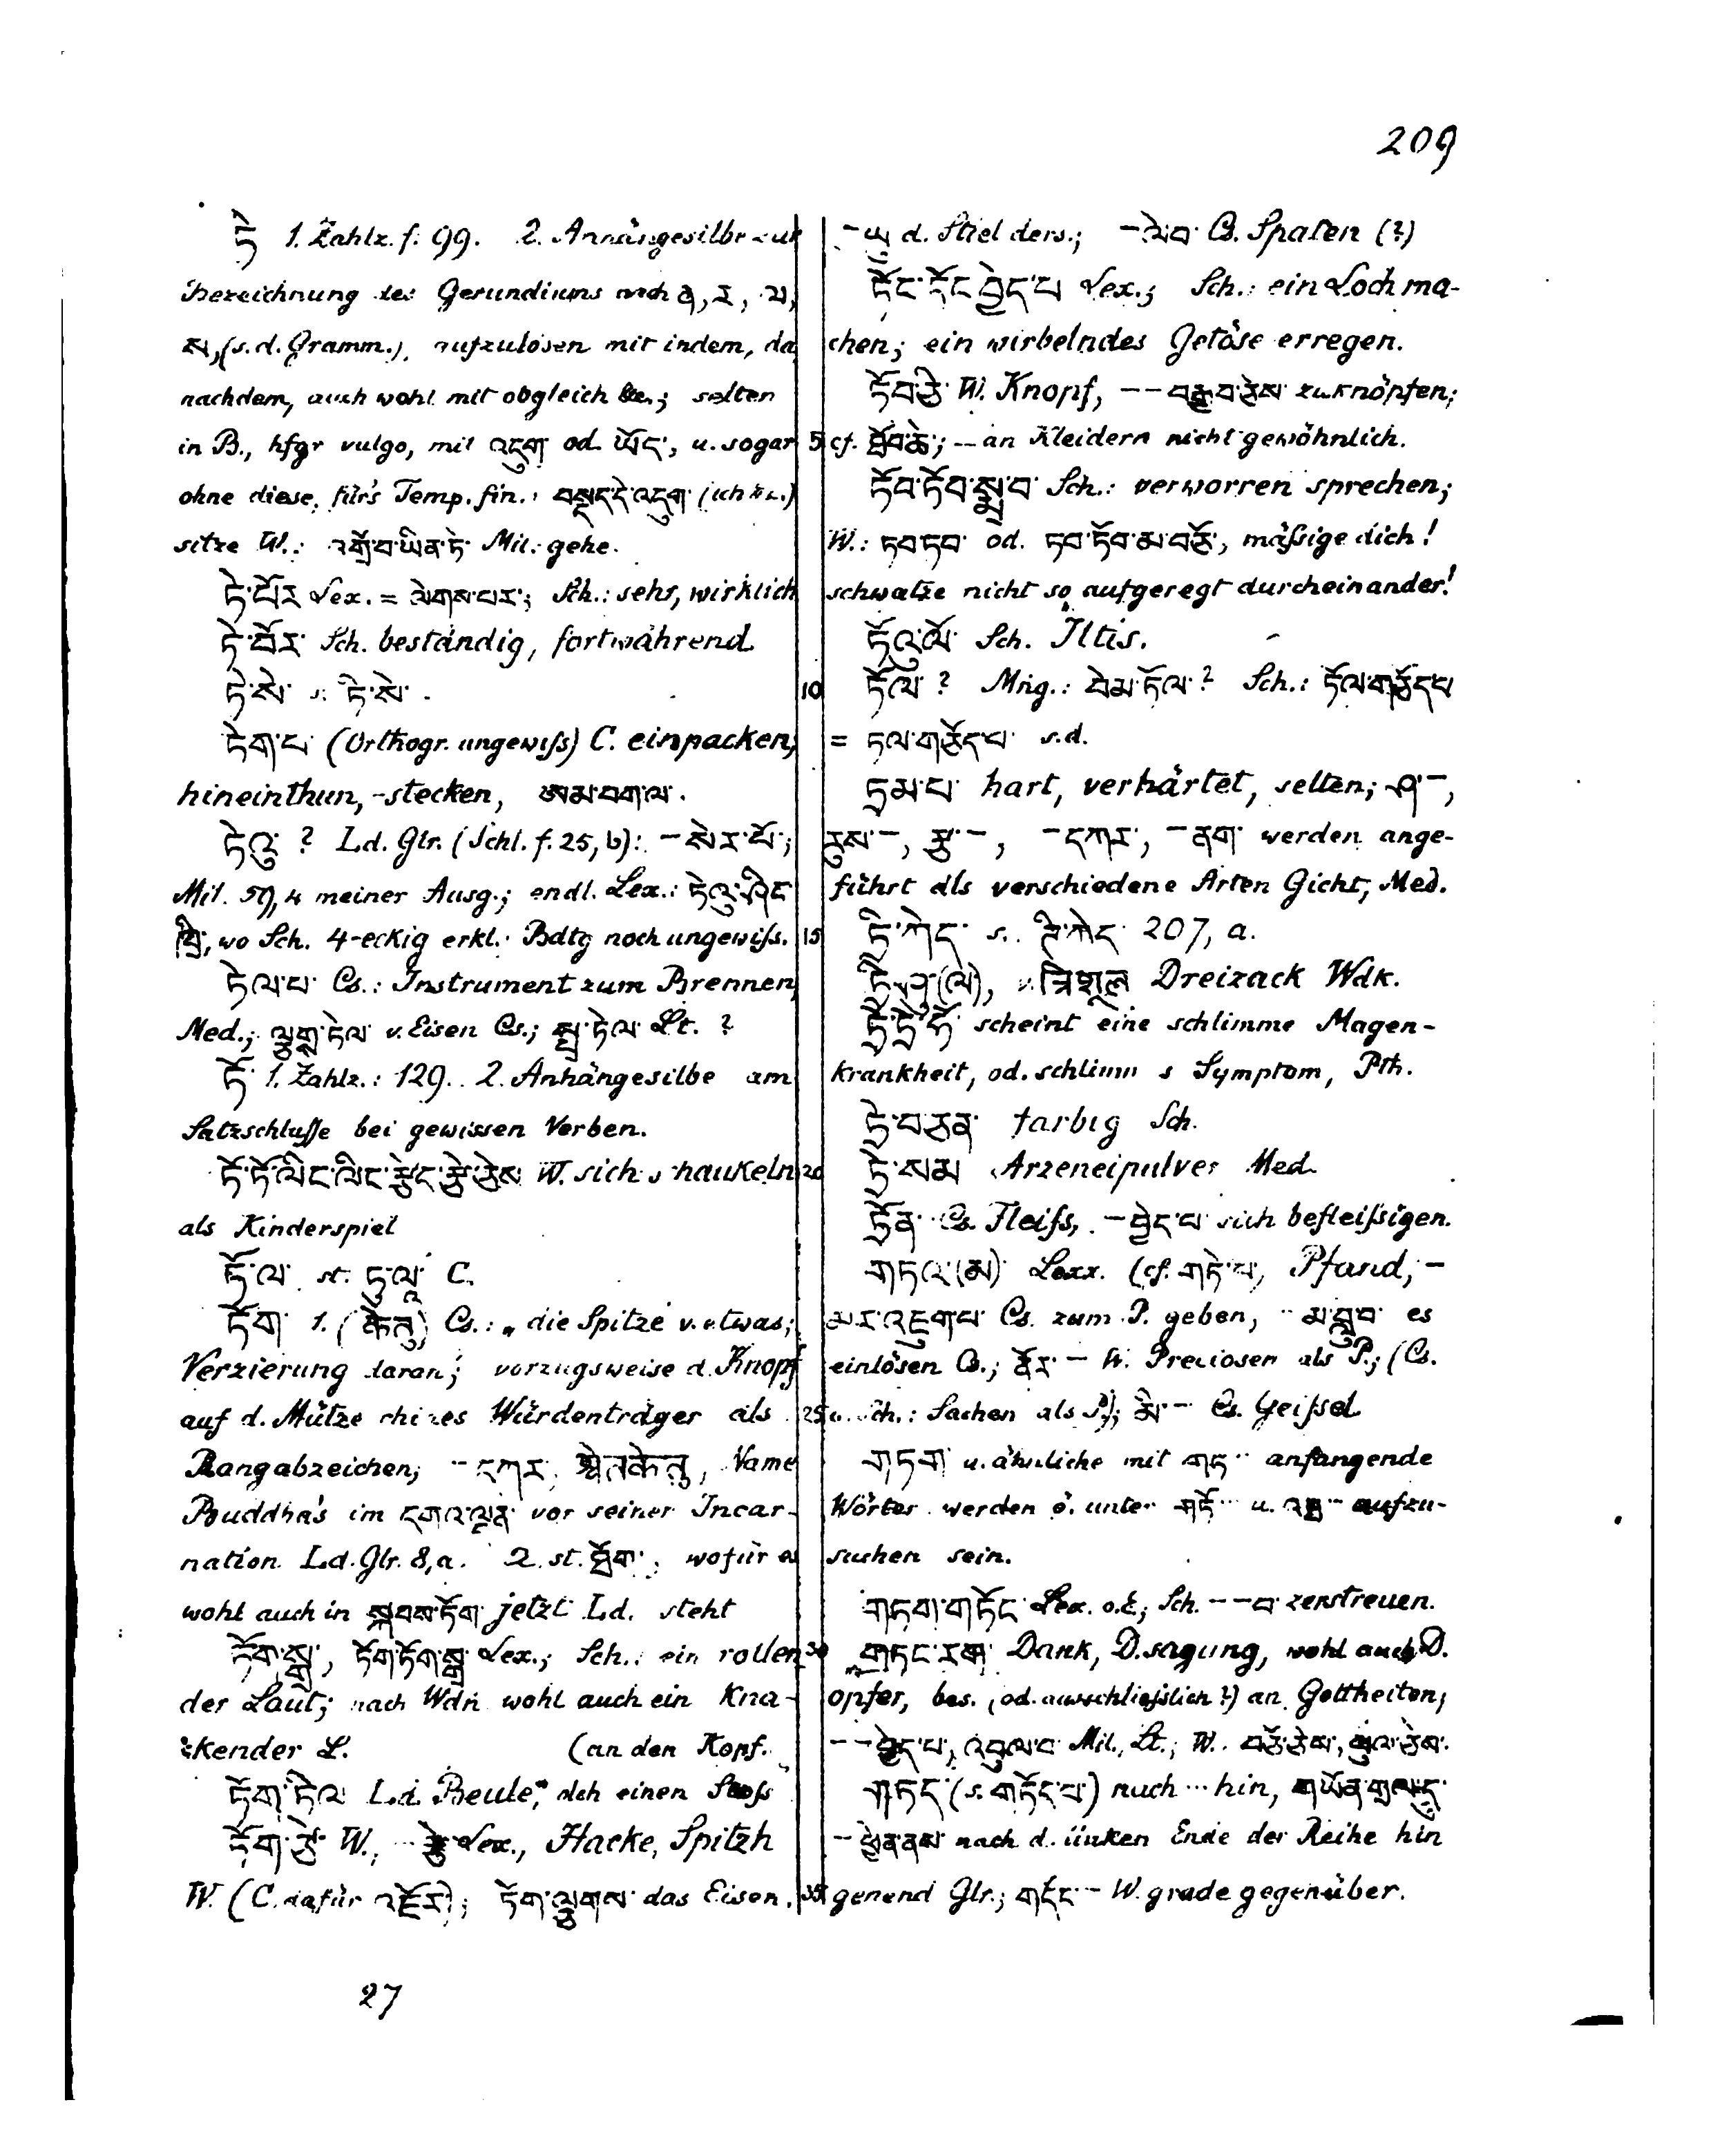 209
ཏེ 1. Zahlz. f. 99. 2. Anhängesilbe zur
Bezeichnung des Gerundiums nach ན, ར, ལ,
ས, (s. d. Gramm.), aufzulösen mit indem, da
nachdem, auch wohl mit obgleich &c.; selten
in B., hfgr vulgo, mit འདུག od. ཡོད་, u. sogar
ohne diese, für's Temp. fin.: བསྡད་དེ་འདུག (ich &c.)
sitze W.: འགྲོ་བ་ཡིན་ཏེ་ Mil.: gehe.
ཏེ་པོར Lex. = ལེགས་པར་; Sch.: sehr, wirklich
ཏེ་བོར Sch. beständig, fortwährend
ཏེ་སེ་ s. ཏི་སེ་.
ཏེག་པ (Orthogr. ungewiſs) C. einpacken,
hineinthun, -stecken, ཨམ་བག་ལ་.
ཏེའུ་ ? Ld. Glr. (Schl. f. 25, b): – སེར་པོ་;
Mil. 59, 4 meiner Ausg.; endl. Lex.: ཏེའུ་ཞིང
wo Sch. 4-eckig erkl.: Bdtg noch ungewiſs.
ཏེལ་པ Cs.: Instrument zum Brennen
Med.; ལྕགས་ཏེལ v. Eisen Cs.; སྤྲ་ཏེལ Lt. ?
ཏོ་ 1. Zahlz.: 129. 2. Anhängesilbe am
Satzschluſse bei gewissen Verben.
ཏོ་ཏོ་ལིང་ལིང་རྩེད་རྩེ་ཅེས W. sich schaukeln
als Kinderspiel
ཏོ་ལ་ st. ཏུ་ལཱ་ C.
ཏོག 1. (केतु) Cs.: „die Spitze v. etwas;
Verzierung daran; vorzugsweise d. Knopf
auf d. Mütze chines Würdenträger als
Rangabzeichen; – དཀར་, श्वेतकेतु, Name
Buddha's im དགའ་ལྡན་ vor seiner Incar-
nation Ld. Glr. 8, a. 2. st. ཐོག་, wofür es
wohl auch in སྐབས་ཏོག jetzt Ld. steht
ཏོག་སྒྲ, ཏོག་ཏོག་སྒྲ Lex.; Sch.: ein rollen
der Laut; nach Wdn wohl auch ein Kna-
ckender L. (an den Kopf.
ཏོག་ཏེལ Ld. Beule, dch einen Stoſs
ཏོག་ཙེ་ W., – རྩེ Lex., Hacke, Spitzh
W. (C. dafür འཇོར); ཏོག་ལྕགས das Eisen.
27
– ཡུ d. Stiel ders.; – ལེབ་ Cs. Spaten (?)
ཏོང་ཏོང་བྱེད་པ Lex.; Sch.: ein Loch ma-
chen; ein wirbelndes Getöse erregen.
ཏོབ་ཅི་ W. Knopf, – – བརྒྱབ་ཅེས zuknöpfen;
5 cf. ཐོབ་ཆེ་; – an Kleidern nicht gewöhnlich.
ཏོབ་ཏོབ་སྨྲ་བ Sch.: verworren sprechen;
W.: ཏབ་ཏབ་ od. ཏབ་ཏོབ་མ་བཅོ་, mäſsige dich!
schwatze nicht so aufgeregt durcheinander!
ཏོའུ་ལོ་ Sch. Iltis.
10 ཏོལ་ ? Mṅg.: བེམ་ཏོལ་ ? Sch.: ཏོལ་གཅོད་པ
= ཏལ་གཅོད་པ s. d.
ཏྲམ་པ་ hart, verhärtet, selten; ཤ་–,
རུས་–, རྩ་–, – དཀར་, – ནག་ werden ange-
führt als verschiedene Arten Gicht, Med.
15 ཏྲི་ཀེད་ s. 207, a.
ཏྲི་ཤུ་(ལེ), त्रिशूल Dreizack Wdk.
scheint eine schlimme Magen-
krankheit, od. schlimm s Symptom, Pth.
ཏྲེ་བཅན་ farbig Sch.
20 ཏྲེ་སམ Arzeneipulver Med.
ཏྲོན་ Cs. Fleiſs, – བྱེད་པ sich befleiſsigen.
གཏའ་(མ) Lexx. (cf. གཏེ་པ), Pfand, –
མར་འཇུག་པ Cs. zum P. geben, – མ་བླུ་བ es
einlösen Cs.; ནོར་ – W. Preciosen als P.; (Cs.
25 u. Sch.: Sachen als P.); མི་ – Cs. Geiſsel
གཏག་ u. ähnliche mit གཏ anfangende
Wörter werden ö. unter གཏོ u. aufzu-
suchen sein.
གཏག་གཏོང Lex. o. E.; Sch. – – བ zerstreuen.
30 གཏང་རག་ Dank, D. sagung, wohl auch D.
opfer, bes. (od. ausschlieſslich?) an Gottheiten;
– – བྱེད་པ, འབུལ་བ Mil., Lt.; W. བཅོ་ཅེས, ཕུལ་ཅེས.
གཏད་ (s. གཏོད་པ་) nach ... hin, གཡོན་གྲལ་དུ
– ཕྱིན་ནས nach d. linken Ende der Reihe hin
35 gehend Glr.; གདོང་ – W. grade gegenüber.